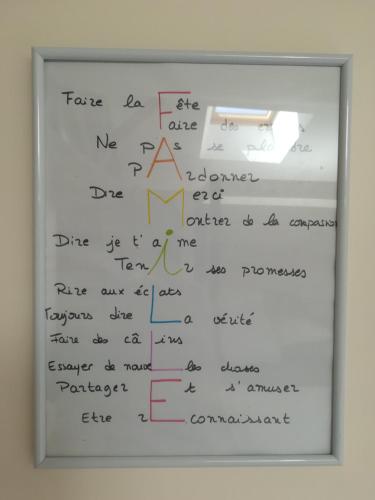 Faire la Fête
Faire des erreurs
Ne pAs se plaindre
pArdonner
Dire Merci
Montrer de la compassion
Dire je t'aime
Tenir ses promesses
Rire aux écLats
Toujours dire La vérité
Faire des câLins
Essayer de nouveLles choses
Partager Et s'amuser
Etre rEconnaissant